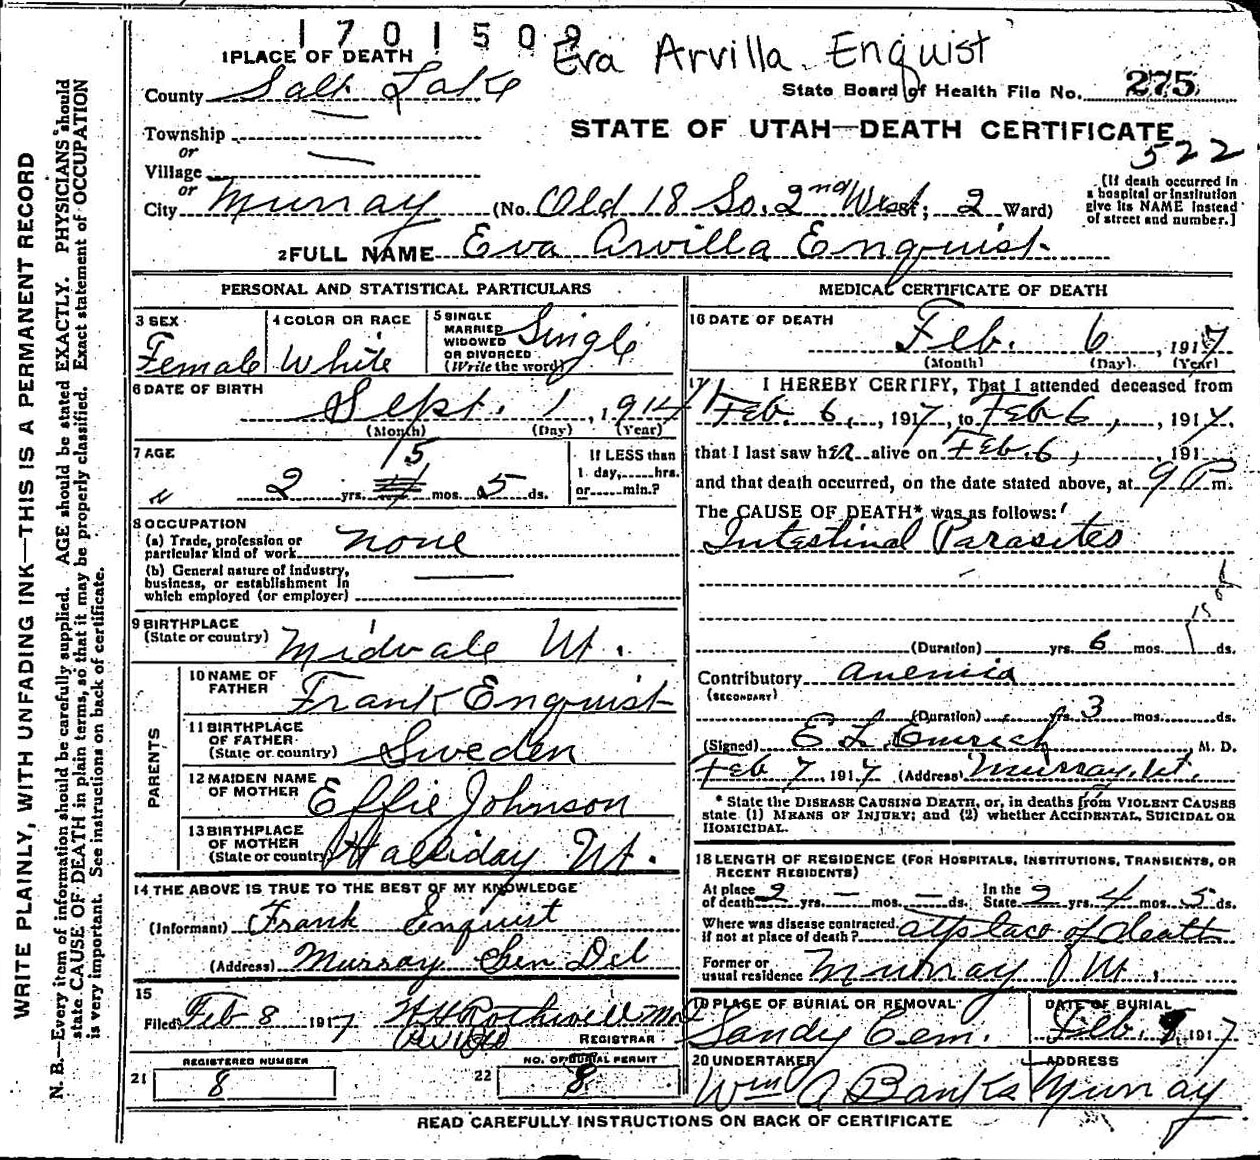 1701509
Eva Arvilla Enquist
1 PLACE OF DEATH
County Salt Lake
State Board of Health File No. 275
Township
STATE OF UTAH—DEATH CERTIFICATE
522
or
Village
or
City Murray (No. Old 18 So. 2nd West St; 2 Ward)
(If death occurred in
a hospital or institution
give its NAME instead
of street and number.]
2 FULL NAME Eva Arvilla Enquist
PERSONAL AND STATISTICAL PARTICULARS
3 SEX Female
4 COLOR OR RACE White
5 SINGLE
MARRIED
WIDOWED
OR DIVORCED
(Write the word) Single
6 DATE OF BIRTH
Sept. 1, 1914
(Month) (Day) (Year)
7 AGE
2 yrs. 5 mos. 5 ds.
If LESS than
1 day, hrs.
or min.?
8 OCCUPATION
(a) Trade, profession or
particular kind of work none
(b) General nature of industry,
business, or establishment in
which employed (or employer)
9 BIRTHPLACE
(State or country) Midvale Ut.
PARENTS
10 NAME OF
FATHER Frank Enquist
11 BIRTHPLACE
OF FATHER
(State or country) Sweden
12 MAIDEN NAME
OF MOTHER Effie Johnson
13 BIRTHPLACE
OF MOTHER
(State or country) Halliday Ut.
14 THE ABOVE IS TRUE TO THE BEST OF MY KNOWLEDGE
(Informant) Frank Enquist
(Address) Murray Gen Del
15
Filed Feb 8 1917 H H Rothwell
REGISTRAR
REGISTERED NUMBER
21 8
NO. OF BURIAL PERMIT
22 8
MEDICAL CERTIFICATE OF DEATH
16 DATE OF DEATH
Feb. 6, 1917
(Month) (Day) (Year)
17 I HEREBY CERTIFY, That I attended deceased from
Feb. 6, 1917, to Feb 6, 1917,
that I last saw her alive on Feb. 6, 191
and that death occurred, on the date stated above, at 9 P m.
The CAUSE OF DEATH* was as follows:
Intestinal Parasites
(Duration) yrs. 6 mos. ds.
Contributory anemia
(SECONDARY)
(Duration) yrs. 3 mos. ds.
(Signed) E L Emrich, M. D.
Feb 7, 1917 (Address) Murray, Ut.
* State the DISEASE CAUSING DEATH, or, in deaths from VIOLENT CAUSES
state (1) MEANS OF INJURY; and (2) whether ACCIDENTAL, SUICIDAL OR
HOMICIDAL.
18 LENGTH OF RESIDENCE (FOR HOSPITALS, INSTITUTIONS, TRANSIENTS, OR
RECENT RESIDENTS)
At place
of death 2 yrs. — mos. — ds.
In the
State 2 yrs. 4 mos. 5 ds.
Where was disease contracted,
if not at place of death? at place of death
Former or
usual residence Murray Ut.
19 PLACE OF BURIAL OR REMOVAL
Sandy Cem.
DATE OF BURIAL
Feb. 1917
20 UNDERTAKER
Wm A Banks
ADDRESS
Murray
READ CAREFULLY INSTRUCTIONS ON BACK OF CERTIFICATE
WRITE PLAINLY, WITH UNFADING INK—THIS IS A PERMANENT RECORD
N. B.—Every item of information should be carefully supplied. AGE should be stated EXACTLY. PHYSICIANS should
state CAUSE OF DEATH in plain terms, so that it may be properly classified. Exact statement of OCCUPATION
is very important. See instructions on back of certificate.